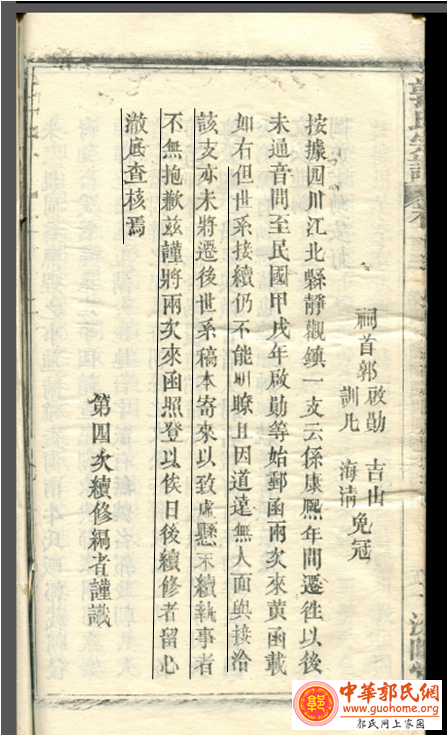 郭氏宗譜
祠首郭啟勛 吉山 免冠
訓凡 海清
按據四川江北縣靜觀鎮一支云係康熙年間遷徃以後
未通音問至民國甲戌年啟勛等始郵函兩次來黃函載
如右但世系接續仍不能明瞭且因道遠無人面與接洽
該支亦未將遷後世系稿本寄來以致虛懸未續執事者
不無抱歉茲謹將兩次來函照登以俟日後續修者留心
澈底查核焉
第四次續修編者謹識
中華郭氏網
www.guohome.org
郭氏网上家園